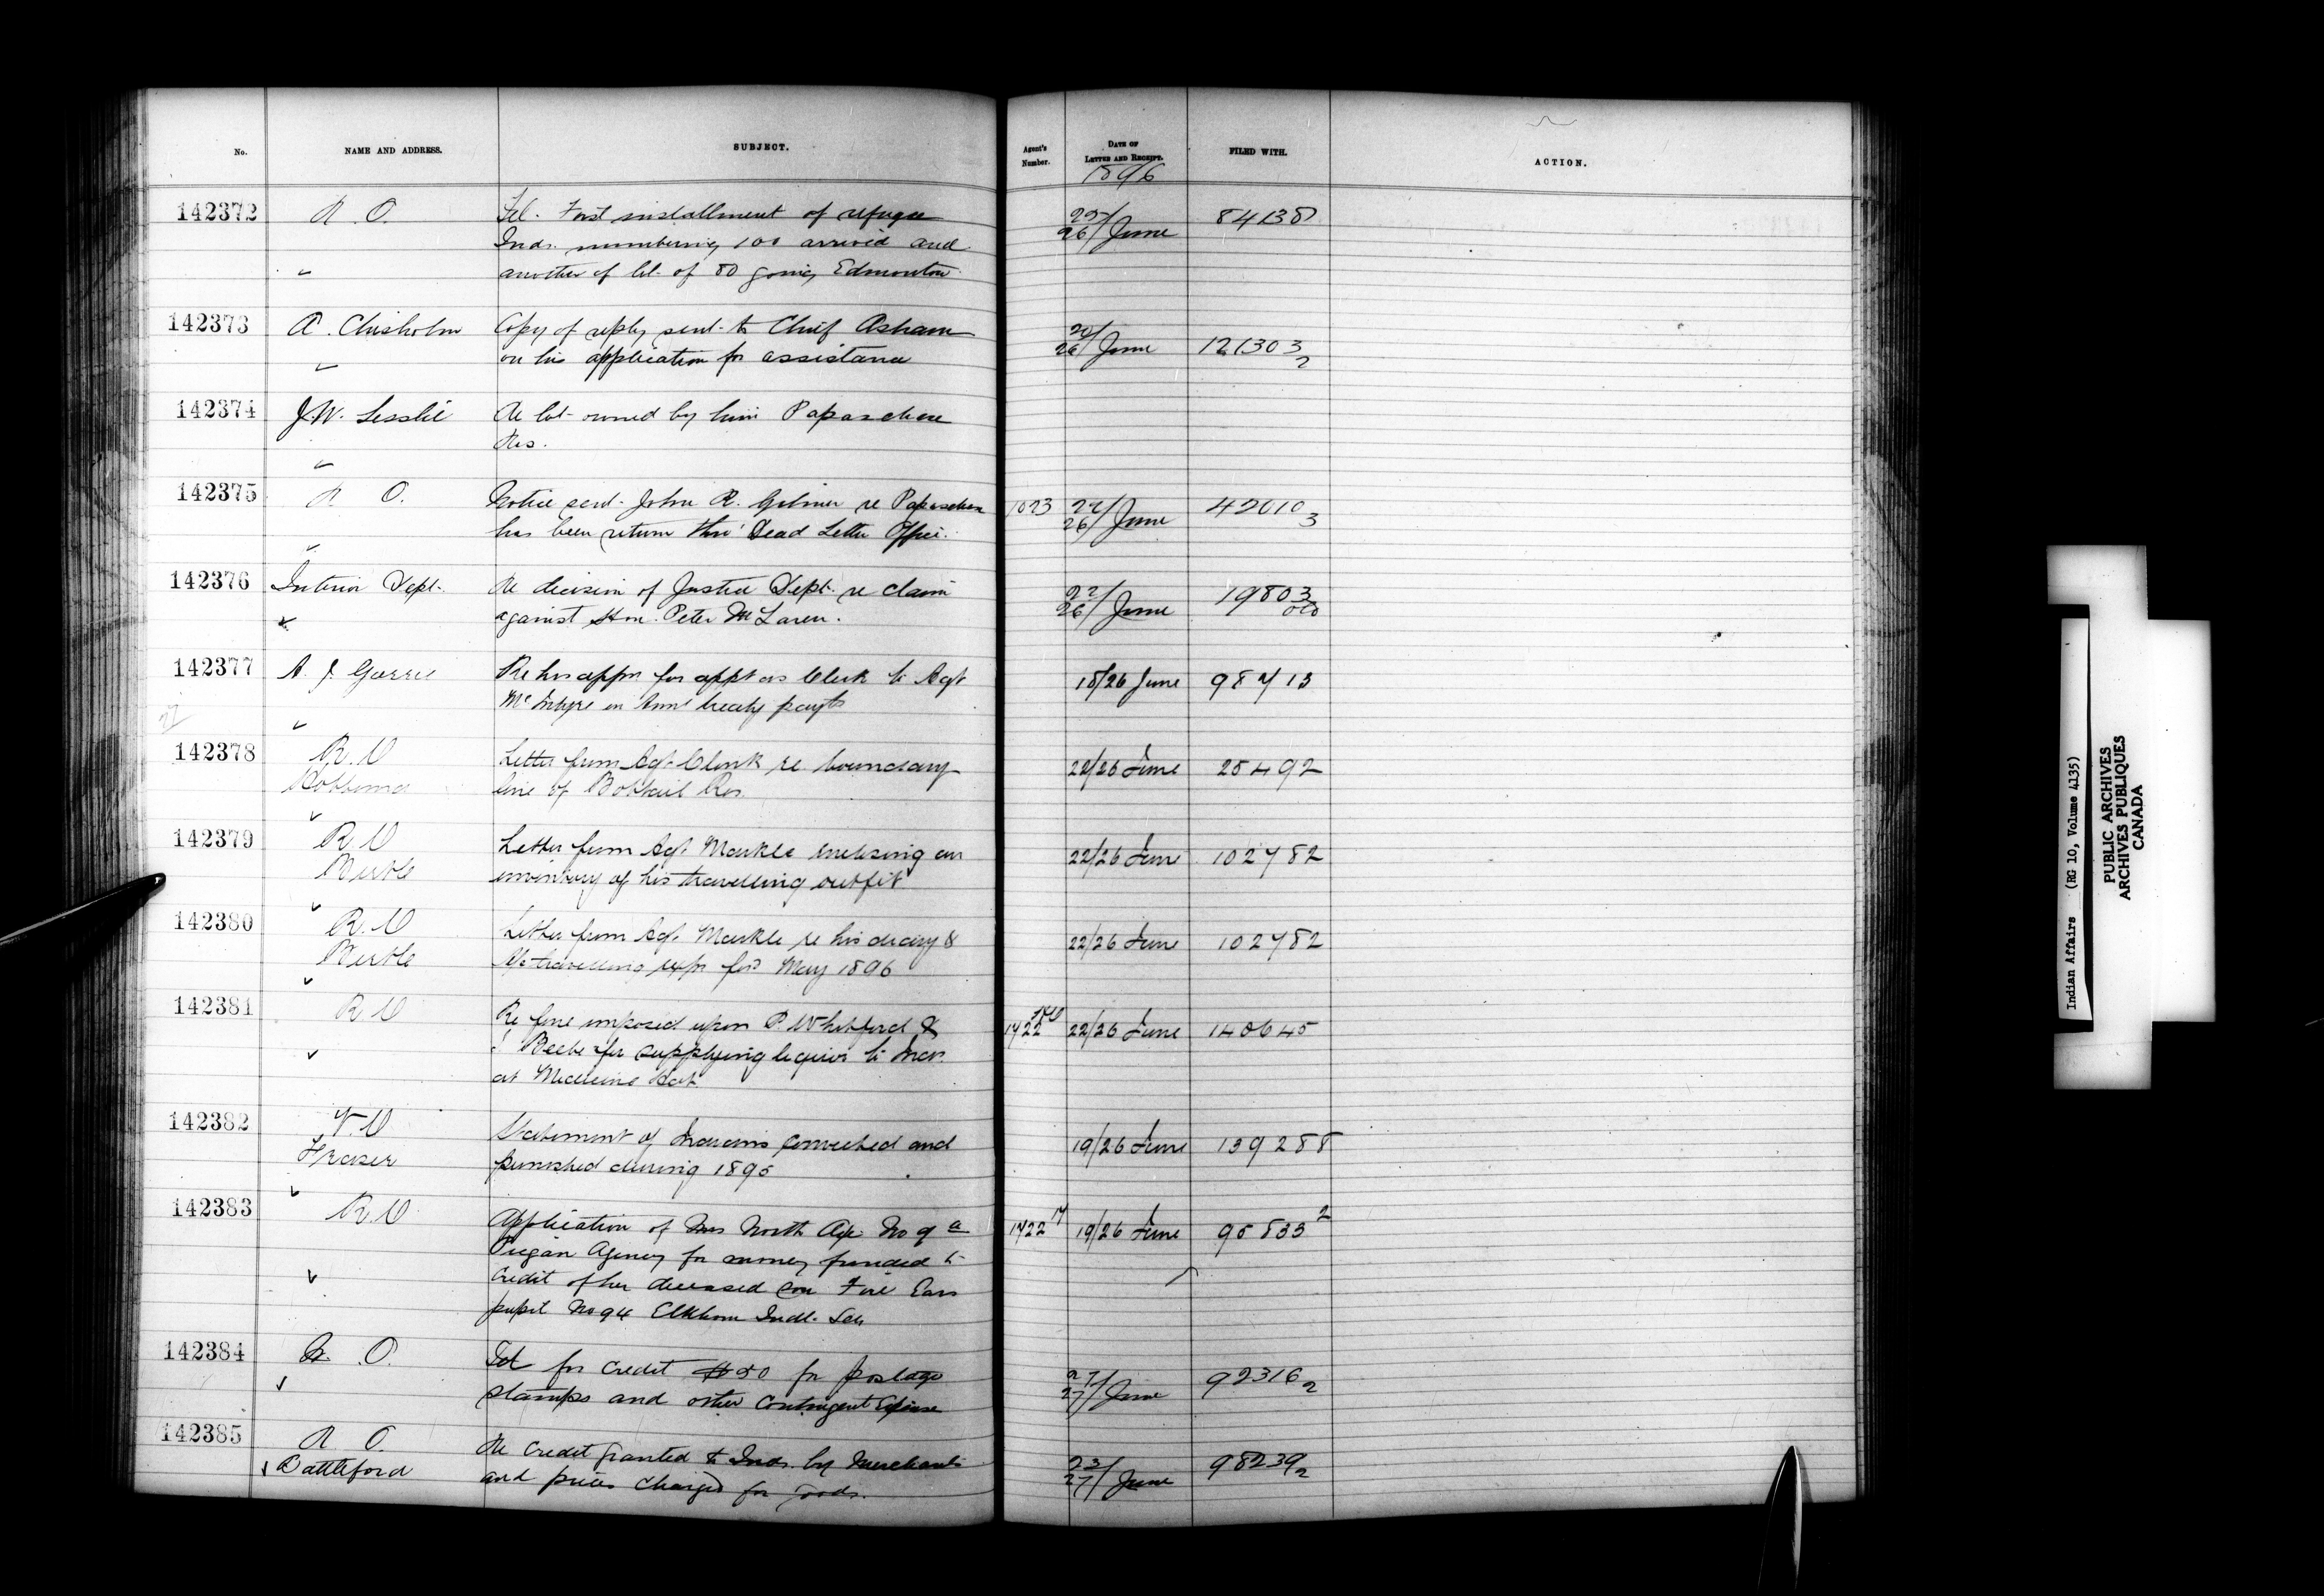 No. NAME AND ADDRESS. SUBJECT. Agent's Number. DATE OF LETTER AND RECEIPT. FILED WITH. ACTION.
1896
142372 R. O. Tel. First installment of refugee 25/26 June 84138
Inds. numbering 100 arrived and
another of lot of 80 going Edmonton
142373 A. Chisholm Copy of reply sent to Chief Asham 20/26 June 121303 2
on his application for assistance
142374 J.W. Lesslie Re lot owned by him Papaschase
Res.
142375 R O. Notice sent John R. Gilmer re Papaschase 1023 22/26 June 42010 3
has been return thro' Dead Letter Office.
142376 Interior Dept. Re decision of Justice Dept. re claim 22/26 June 19803
against Hon. Peter McLaren.
142377 A. J. Garrie Re his appn for appt as Clerk to Agt 18/26 June 98713
McIntyre in Annl treaty payts
142378 R. O Letter from Agt Clink re boundary 22/26 June 25492
Hobbema line of Bobtail Res.
142379 R. O Letter from Agt Markle enclosing an 22/26 June 102782
Birtle inventory of his travelling outfit
142380 R. O Letter from Agt. Markle re his diary & 22/26 June 102782
Birtle travelling exps for May 1896
142381 R O Re fine imposed upon P. Whitford & 1722 22/26 June 140645
Beebe for supplying liquor to Inds.
at Medicine Hat
142382 V. O Statement of Indians convicted and 19/26 June 139288
Fraser punished during 1895
142383 R. O Application of Mrs North Axe No 9 a 1722 17 19/26 June 95833 2
Piegan Agency for money funded to
credit of her deceased son Five Ears
pupil No 94 Elkhorn Indl. Sch
142384 R. O. Tel for credit $50 for postage 27/27 June 92316 2
stamps and other Contingent Expense
142385 R O. Re credit granted to Inds. by Merchants 23/27 June 98239 2
Battleford and prices charged for goods.
Indian Affairs (RG 10, Volume 4135)
PUBLIC ARCHIVES
ARCHIVES PUBLIQUES
CANADA